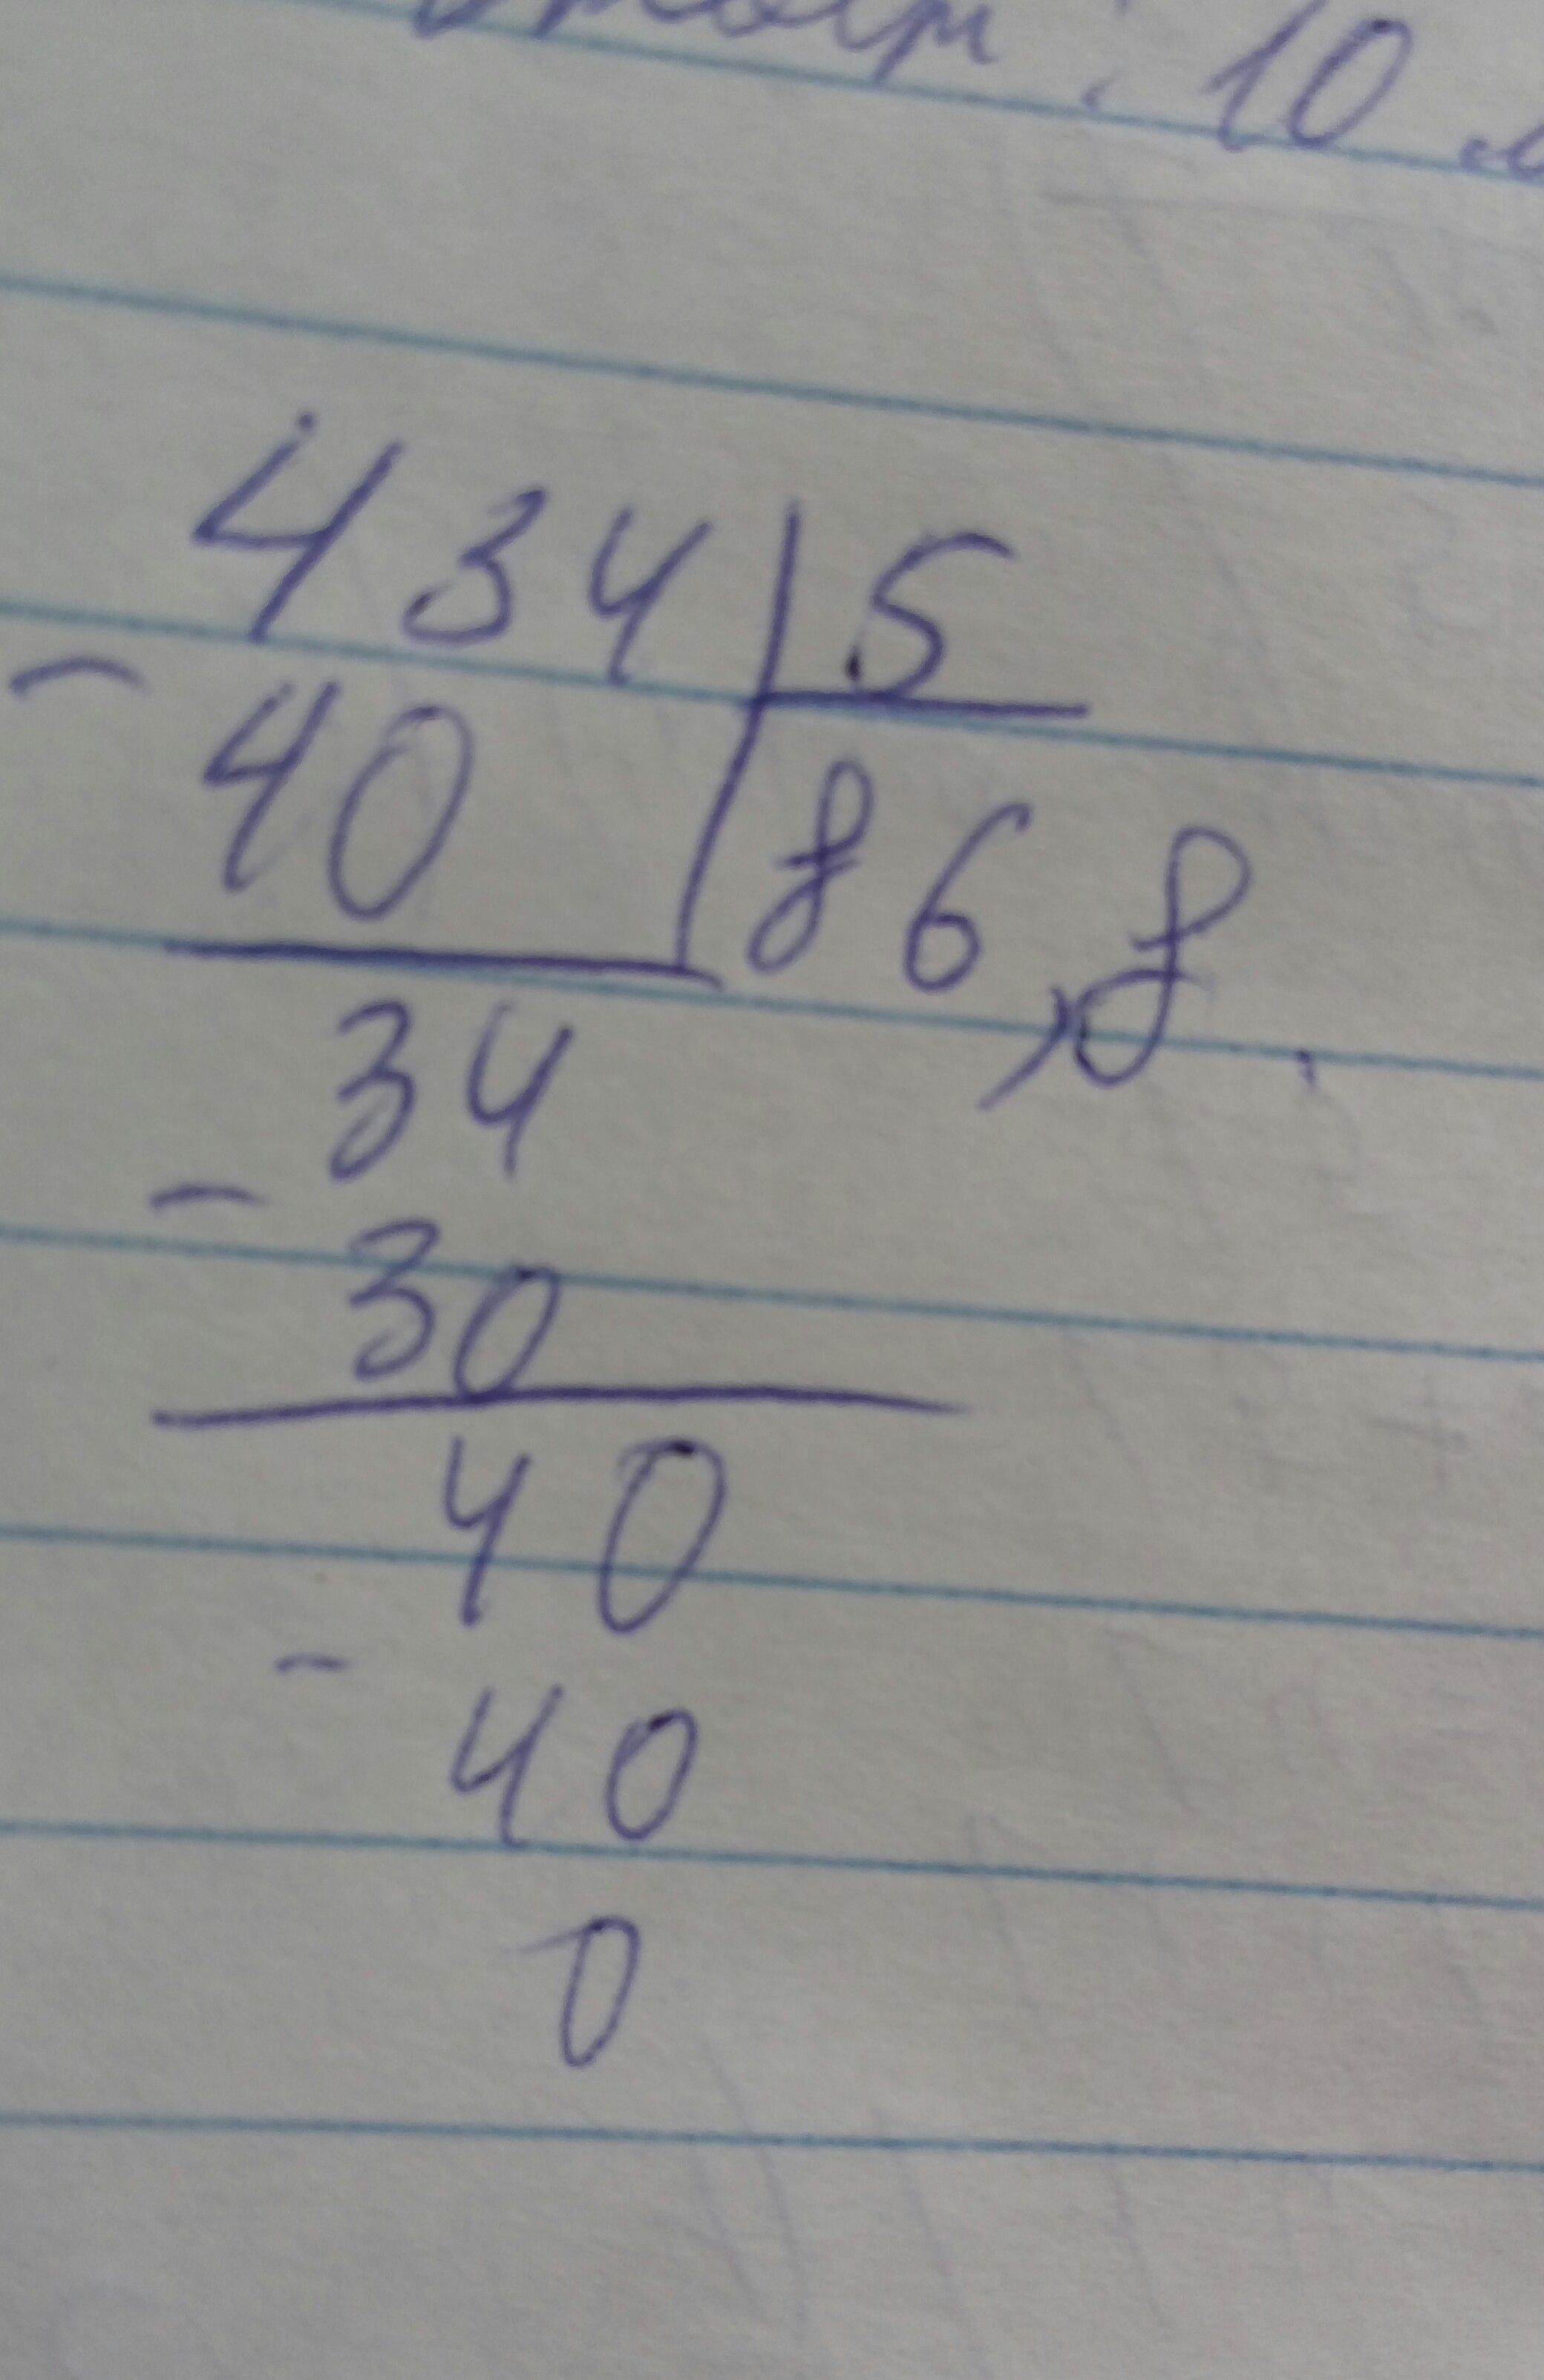 : 10
434 5
- 40 86,8
34
- 30
40
- 40
0